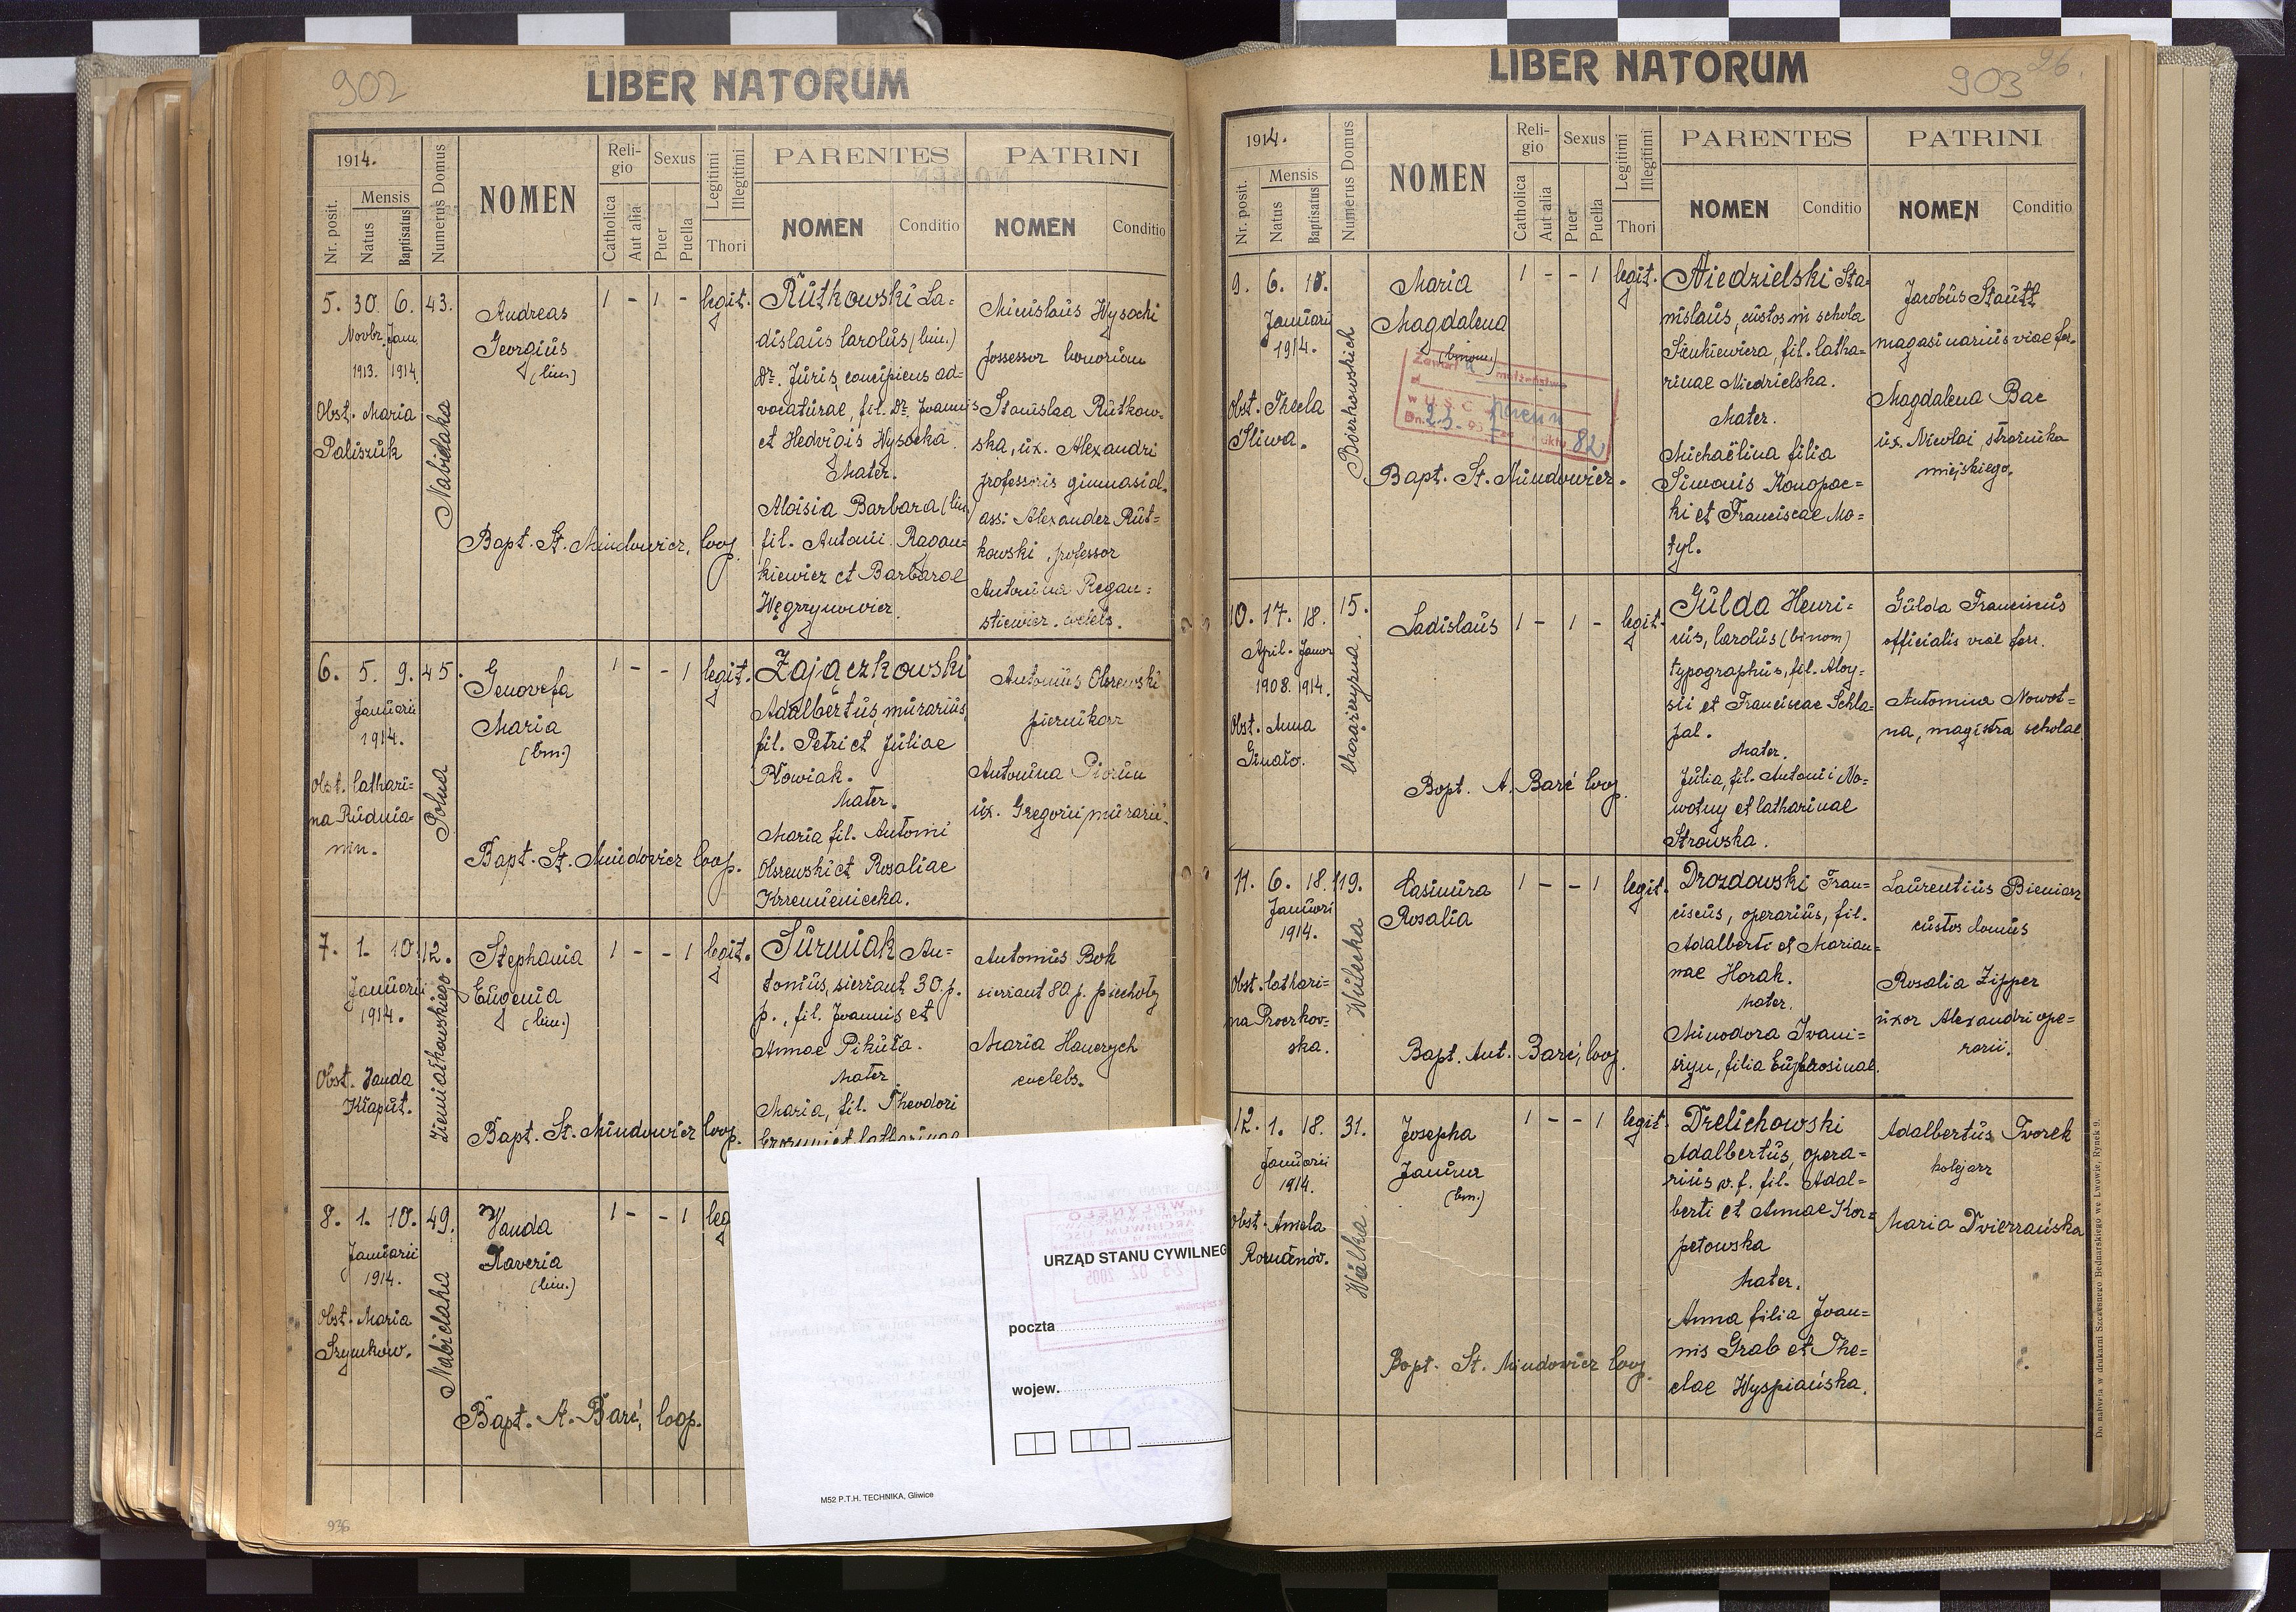 902
LIBER NATORUM
1914.
Nr. posit.
Mensis
Natus
Baptisatus
Numerus Domus
NOMEN
Religio
Catholica
Aut alia
Sexus
Puer
Puella
Legitimi
Illegitimi
Thori
PARENTES
NOMEN
Conditio
PATRINI
NOMEN
Conditio
5. 30. 6. 43.
Novbr. Janu.
1913. 1914.
Obst. Maria
Paliszuk
Nabielaka
Andreas
Georgius
(bin.)
1 - 1 - legit.
Bapt. St. Mindowicz, Coop.
Rutkowski La=
dislaus Carolus (bin.)
Dr. Juris, concipiens ad=
vocaturae, fil. Dr. Joannis
et Hedvigis Wysocka.
Mater.
Aloisia Barbara (bin.)
fil. Antonii
kiewicz et Barbarae
Węgrzynowicz.
Miecislaus Wysocki
possessor bonorum
Stanislaa Rutkow=
ska, ux. Alexandri
professoris gimnasial.
ass: Alexander Rut=
kowski, professor
Antonina
celebs.
6. 5. 9. 45.
Januarii
1914.
Obst. Cathari=
na Rudnia=
nin.
Polna
Genovefa
Maria
(bin.)
1 - - 1 legit.
Bapt. St. Mindowicz Coop.
Zajączkowski
Adalbertus, murarius,
fil. Petri et Juliae
Nowiak.
Mater.
Maria fil. Antoni
Olszewski et Rosaliae
Krzemieniecka.
Antonius Olszewski
piernikarz
Antonina Piorun
ux. Gregorii, murarii.
7. 1. 10. 12.
Januarii
1914.
Obst. Vanda
Kłaput.
Ziemiałkowskiego
Stephania
Eugenia
(bin.)
1 - - 1 legit.
Bapt. St. Mindowicz Coop.
Surmiak An=
tonius, sierżant 30. p.
p., fil. Joannis et
Annae Pikuła.
Mater.
Maria, fil. Theodori
Antonius Bok
sierżant 80. p. piechoty
Maria Hawrych
caelebs.
8. 1. 10. 49.
Januarii
1914.
Obst. Maria
Szymkow.
Nabielaka
Vanda
Xaveria
(bin.)
1 - - 1 leg
Bapt. A. Bare, Coop.
936
URZĄD STANU CYWILNEG
poczta
wojew.
M52 P.T.H. TECHNIKA, Gliwice
LIBER NATORUM
903
26.
1914.
Nr. posit.
Mensis
Natus
Baptisatus
Numerus Domus
NOMEN
Religio
Catholica
Aut alia
Sexus
Puer
Puella
Legitimi
Illegitimi
Thori
PARENTES
NOMEN
Conditio
PATRINI
NOMEN
Conditio
9. 6. 10.
Januarii
1914.
Obst. Thecla
Śliwa.
Maria
Magdalena
(binom.)
małżeństwo
w U.S.C.
82
1 - - 1 legit.
Bapt. St. Mindowicz.
Niedzielski Sta=
nislaus, custos in schola
Sienkiewicza, fil. Catha=
rinae Niedzielska.
Mater.
Michaëlina filia
Simonis Konopac=
ki et Franciscae Mo=
tyl.
Jacobus Stautt
magasinarius viae fer.
Magdalena Bac
ux. Nicolai, strażnika
miejskiego.
10. 17. 18. 15.
April. Januar
1908. 1914.
Obst. Anna
Chorążczyzna.
Ladislaus
1 - 1 - legit.
Bapt. A. Bare Coop.
Gulda Henri=
cus, Carolus (binom)
typographus, fil. Aloy=
sii et Franciscae Schla=
pal.
Mater.
Julia, fil. Antonii No=
wotny et Catharinae
Strowska.
Gulda Franciscus
officialis viae ferr.
Antonina Nowot=
na, magistra scholae
11. 6. 18. 119.
Januarii
1914.
Obst. Cathari=
na Proczkow=
ska.
Wulecka
Casimira
Rosalia
1 - - 1 legit.
Bapt. Ant. Bare, Coop.
Drozdowski Fran=
ciscus, operarius, fil.
Adalberti et Marian=
nae Horak.
Mater.
Minodora Iwani=
szyn, filia Euphrosinae.
Laurentius Bieniasz
custos domus
Rosalia Zipper
uxor Alexandri ope=
rarii.
12. 1. 18. 31.
Januarii
1914.
Obst. Amela
Romanów.
Wulka
Josepha
Janina
(bin.)
1 - - 1 legit.
Bapt. St. Mindowicz Coop.
Drelichowski
Adalbertus, opera=
rius v. f. fil. Adal=
berti et Annae Kor=
petowska
Mater.
Anna filia Joan=
nis Grab et The=
clae Wyspiańska.
Adalbertus Tworek
kolejarz
Maria Dwierzańska
Do nabycia w drukarni Szczęsnego Bednarskiego we Lwowie, Rynek 9.